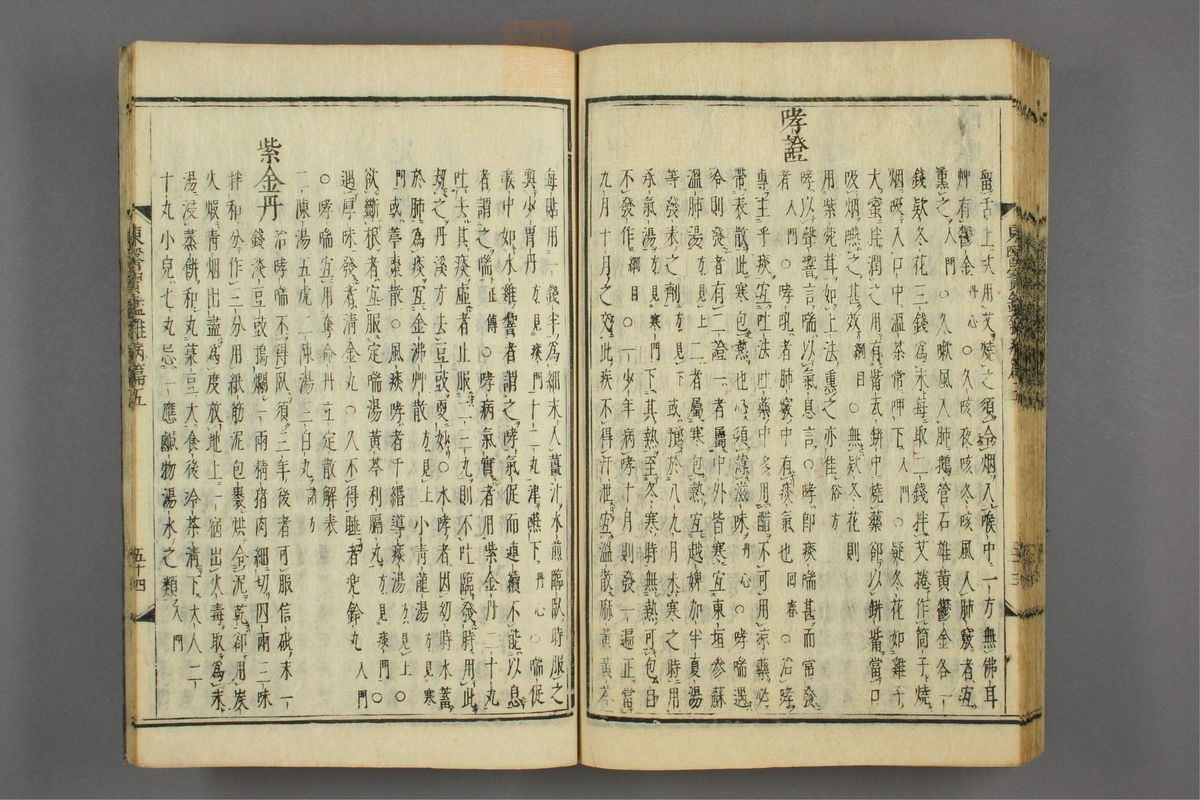 留舌上次用艾燒之須令烟入喉中一方無佛耳
艸有鬱金 丹心 ○久咳夜咳冬咳風入肺竅者宜
熏之 入門 ○久嗽風入肺鵝管石雄黃鬱金各一
錢款冬花三錢爲末每取二錢拌艾捲作筒子燒
烟吸入口中溫茶常呷下 入門 ○疑冬花如雞子
大蜜拌潤之用有觜瓦餠中燒藥卻以餠觜當口
吸烟嚥之甚效 綱目 ○無款冬花則
用紫菀茸如上法熏之亦佳 俗方
哮證
哮以聲響言喘以氣息言○哮卽痰喘甚而常發
者 入門 ○哮吼者肺竅中有痰氣也 回春 ○治哮
專主乎痰宜吐法吐藥中多用醋不可用凉藥必
帶表散此寒包熱也必須薄滋味 丹心 ○哮喘遇
冷則發者有二證一者屬中外皆寒宜東垣參蘇
溫肺湯 方見上 二者屬寒包熱宜越婢加半夏湯
等發表之劑 方見下 或預於八九月未寒之時用
承氣湯 方見寒門 下其熱至冬寒時無熱可包自
不發作 綱目 ○一少年病哮十月則發一遍正當
九月十月之交此疾不得汗泄宜溫散麻黃黃芩
每貼用一錢半爲細末入薑汁水煎臨臥時服之
與少胃丹 方見痰門 十二丸津嚥下 丹心 ○喘促
喉中如水雞聲者謂之哮氣促而連續不能以息
者謂之喘 正傳 ○哮病氣實者用紫金丹二十丸
吐去其痰虛者止服二三丸則不吐臨發時用此
劫之丹溪方去豆豉更妙○水哮者因幼時水蓄
於肺爲痰宜金沸艸散 方見上 小靑龍湯 方見寒
門 或葶棗散○風痰哮者千緡導痰湯 方見上 ○
欲斷根者宜服定喘湯黃芩利膈丸 方見痰門 ○
遇厚味發者淸金丸○久不得睡者兜鈴丸 入門
○哮喘宜用奪命丹立定散解表
二陳湯五虎二陳湯三白丸 諸方
紫金丹
治哮喘不得臥須三年後者可服信砒末一
錢淡豆豉搗爛一兩精猪肉細切四兩三味
拌和分作三分用紙筋泥包裹烘令泥乾却用炭
火煅靑烟出盡爲度放地上一宿出火毒取爲末
湯浸蒸餠和丸菉豆大食後冷茶淸下大人二
十丸小兒七丸忌一應鹹物湯水之類 入門
東醫寶鑑雜病篇五
五十四